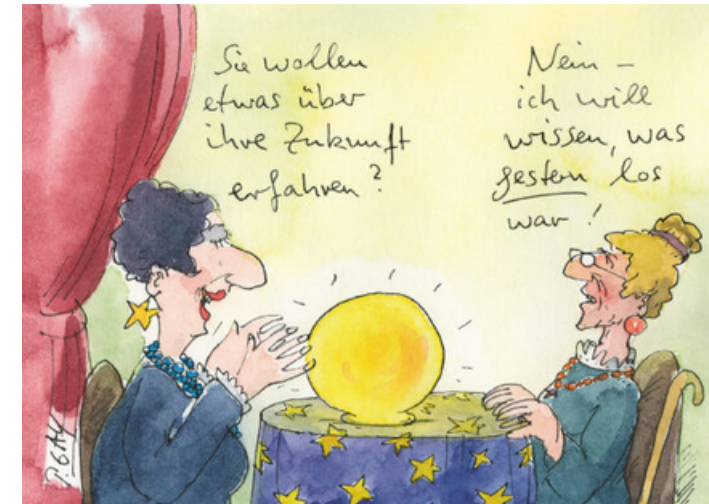 Sie wollen
etwas über
ihre Zukunft
erfahren?
Nein –
ich will
wissen, was
gestern los
war!
P. GAY